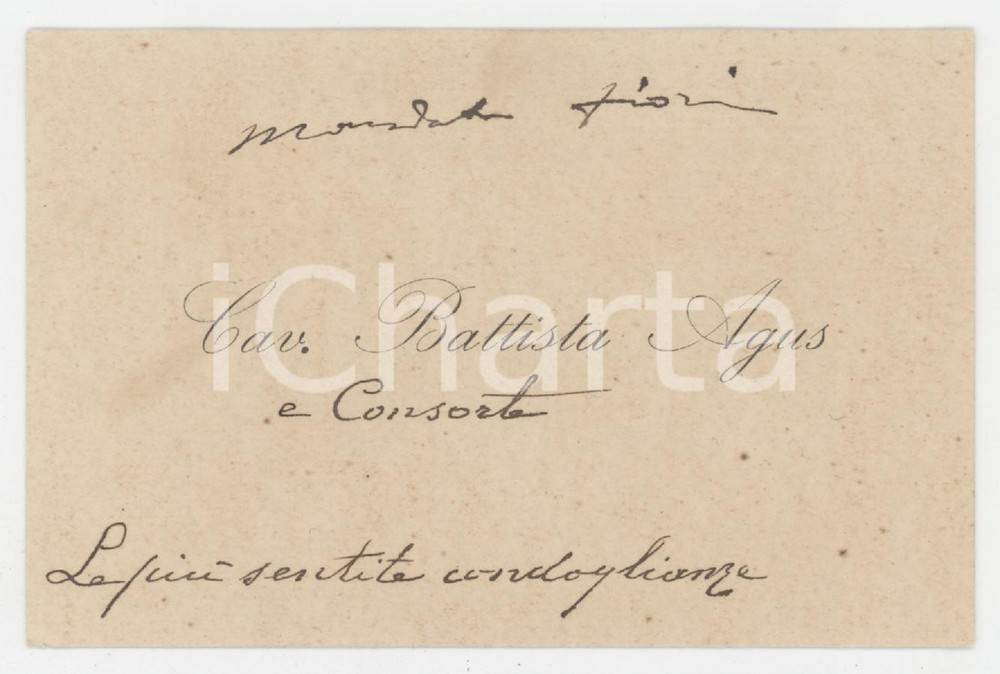 mandato fiori
Cav. Battista Agus
e Consorte
Le più sentite condoglianze
iCharta